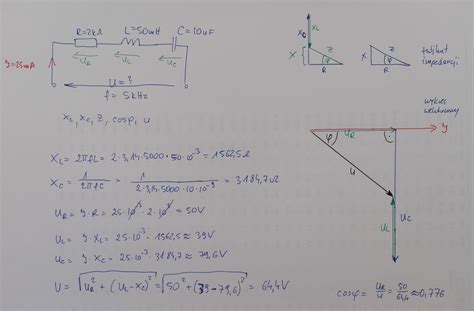 R=2kΩ L=50mH C=10nF
I=25mA
U_R U_L U_C
U=?
f=5kHz
X_L, X_C, Z, cosφ, U
X_L = 2πfL = 2·3,14·5000·50·10⁻³ = 1562,5Ω
X_C = 1/2πfC = 1/2·3,14·5000·10·10⁻⁹ = 3184,7Ω
U_R = I·R = 25·10⁻³·2·10³ = 50V
U_L = I·X_L = 25·10⁻³·1562,5 ≈ 39V
U_C = I·X_C = 25·10⁻³·3184,7 ≈ 79,6V
U = √U_R² + (U_L-X_C)² = √50² + (39-79,6)² = 64,4V
X_L
X_C
X Z φ R
X Z φ R
trójkąt
impedancji
wykres
wektorowy
U_R I
φ
U
U_C
U_L
cosφ = U_R/U = 50/64,4 ≈ 0,776